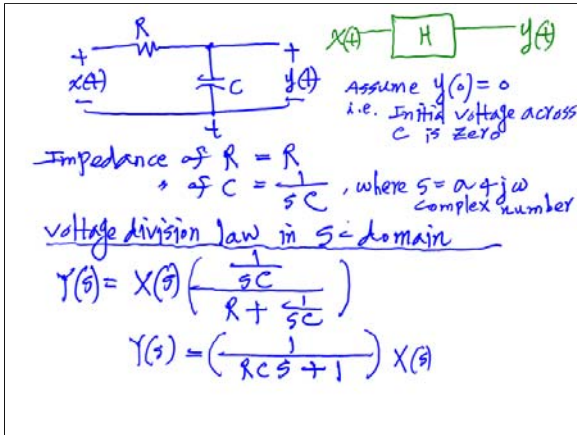 R
x(t) H y(t)
+ + + x(t) - C y(t) -
Assume y(0) = 0
i.e. Initial voltage across
C is zero
Impedance of R = R
" of C = 1/sC , where s = a + jω
complex number
voltage division law in s-domain
Y(s) = X(s) ( (1/sC) / (R + 1/sC) )
Y(s) = ( 1 / (RCs + 1) ) X(s)